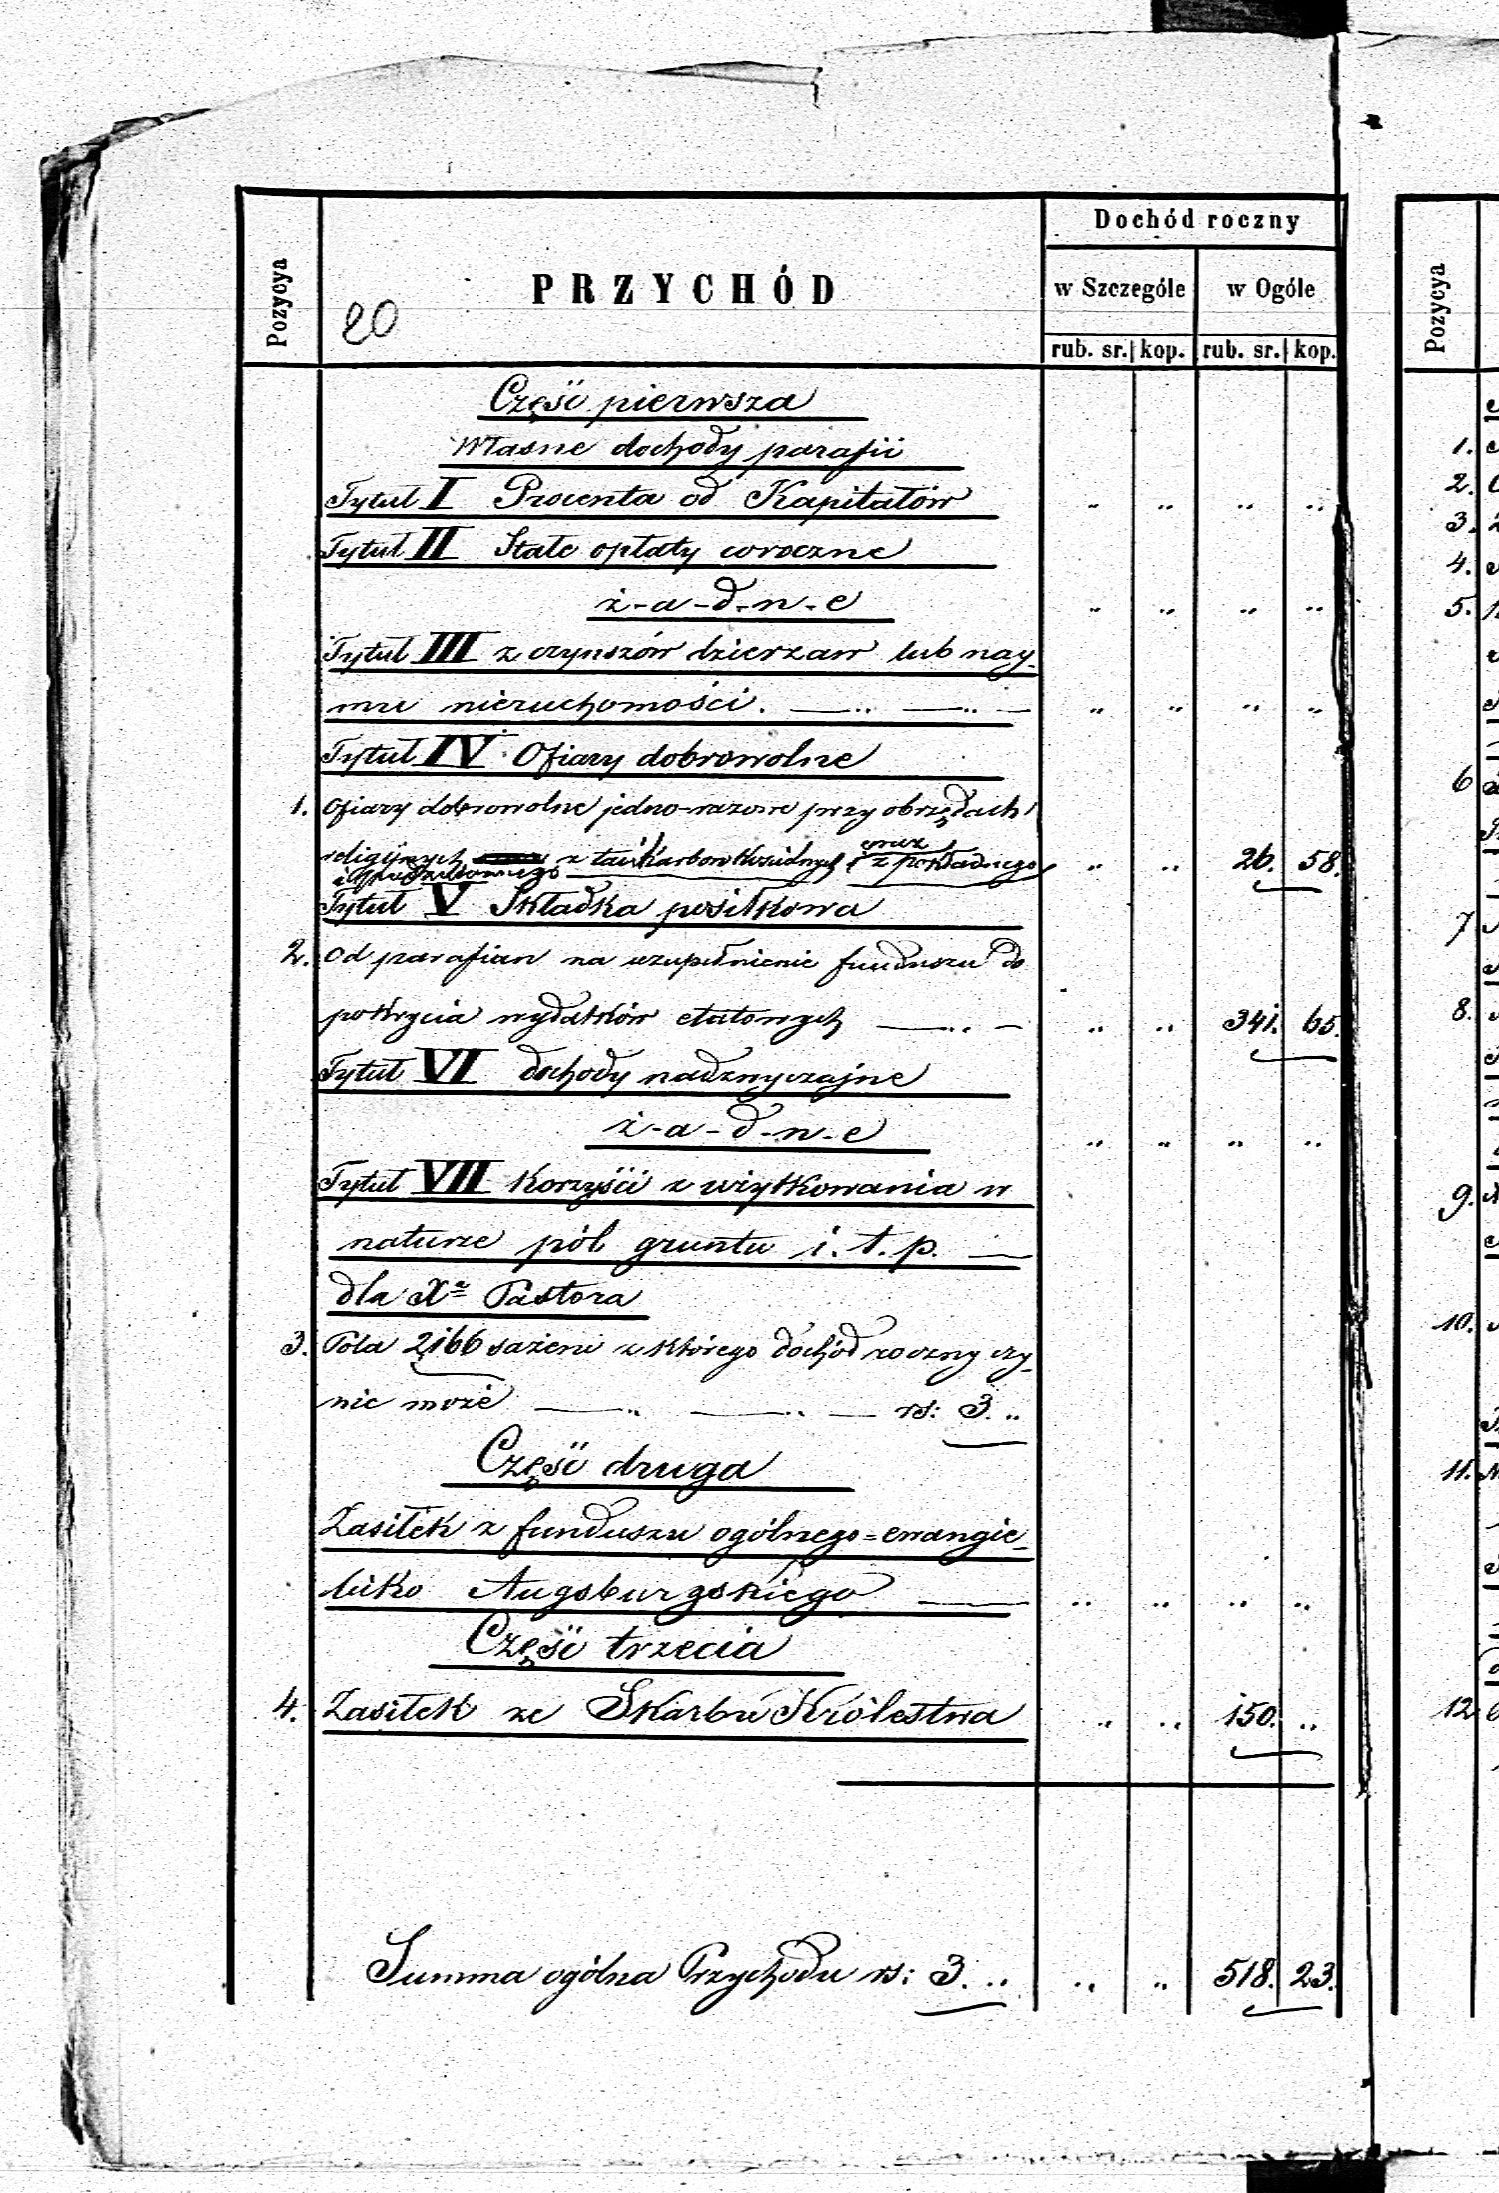 Dochód roczny
Pozycya
PRZYCHÓD
w Szczególe
w Ogóle
Pozycya
20
rub. sr. kop. rub. sr. kop.
Część pierwsza
Własne dochody parafii
Tytuł I Procenta od Kapitałów " " " "
Tytuł II Stałe opłaty coroczne
ż-a-d-n-e " " " "
Tytuł III z czynszów dzierzaw lub nay-
mu nieruchomości. " " " "
Tytuł IV Ofiary dobrowolne
1. Ofiary dobrowolne jedno-razowe przy obrzędach
oraz
religijnych z karbon Kościelnych i z pokładnego " " 26. 58.
Tytuł V Składka posiłkowa
2. Od parafian na uzupełnienie funduszu do
pokrycia wydatków etatowych " " 341. 65.
Tytuł VI dochody nadzwyczajne
ż-a-d-n-e " " " "
Tytuł VII Korzyści z użytkowania w
naturze pól gruntu i.t.p.
dla Xa Pastora
3. Pola 2166 sażeni z którego dochód roczny czy-
nić może rs: 3. "
Część druga
Zasiłek z funduszu ogólnego=ewangie-
licko Augsburgskiego " " " "
Część trzecia
4. Zasiłek ze Skarbu Królestwa " " 150. "
Summa ogólna Przychodu rs: 3. " " " 518. 23.
1.
2.
3.
4.
5.
6
7
8.
9.
10.
11.
12